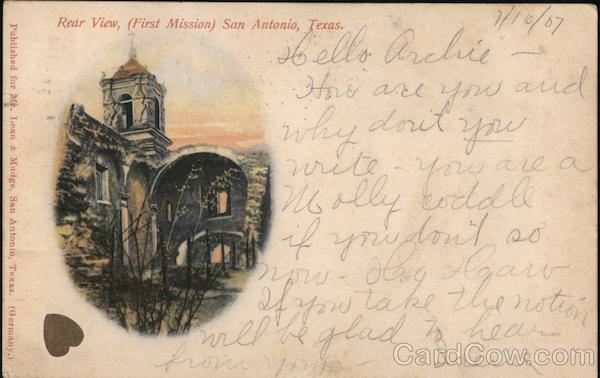 Rear View, (First Mission) San Antonio, Texas.
7/16/07
Hello Archie -
How are you and
why don't you
write - you are a
Molly coddle
if you don't so
now -
If you take the notion
will be glad to hear
from you -
Published for Mc Lean & Mudge, San Antonio, Texas. (Germany.)
CardCow.com